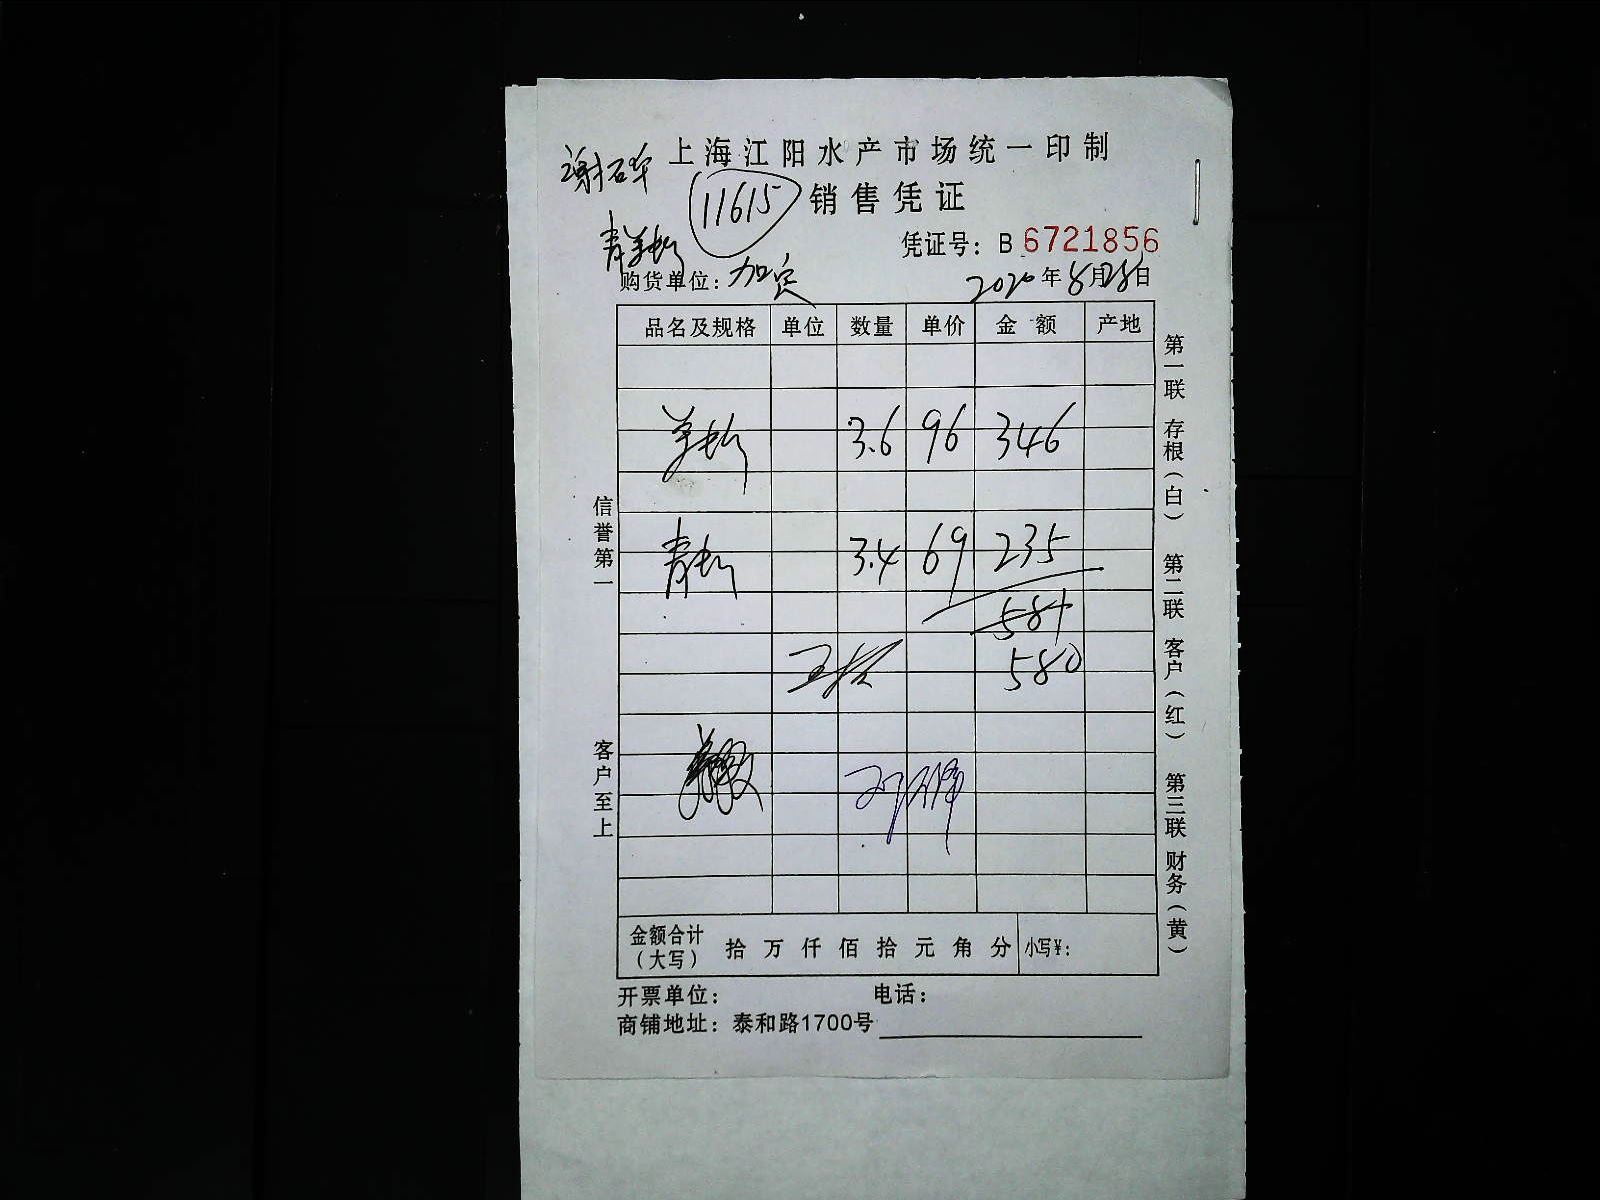 上海江阳水产市场统一印制
11615
销售凭证
凭证号：B 6721856
购货单位：加定
2020年8月28日
品名及规格 单位 数量 单价 金额 产地
3.6 96 346
3.4 69 235
581
580
金额合计（大写） 拾 万 仟 佰 拾 元 角 分 小写¥：
开票单位： 电话：
商铺地址：泰和路1700号
信誉第一
客户至上
第一联 存根（白） 第二联 客户（红） 第三联 财务（黄）